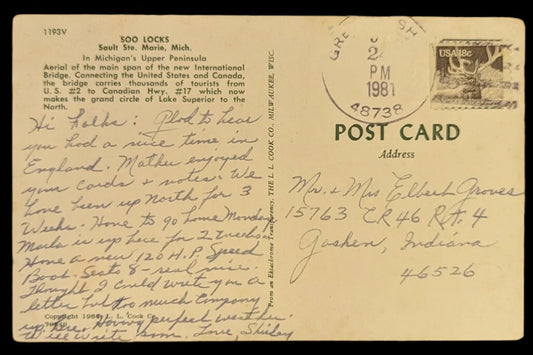 1193V
SOO LOCKS
Sault Ste. Marie, Mich.
In Michigan's Upper Peninsula
Aerial of the main span of the new International
Bridge. Connecting the United States and Canada,
the bridge carries thousands of tourists from
U.S. #2 to Canadian Hwy. #17 which now
makes the grand circle of Lake Superior to the
North.
Hi folks: Glad to hear
you had a nice time in
England. Mother enjoyed
your cards & notes. We
have been up North for 3
Weeks. Have to go home Monday.
Marla is up here for 2 weeks.
Have a new 120 H.P. Speed
Boat. Seats 8 - real nice.
Thought I could write you a
letter but too much Company
up here. Having perfect weather.
Will write soon. Love, Shirley
Copyright 1966 L. L. Cook Co.
From an Ektachrome Transparency. THE L. L. COOK CO., MILWAUKEE, WISC.
PM
1981
48738
USA 18c
POST CARD
Address
Mr. & Mrs Elbert Groves
15763 CR 46 R#4
Goshen, Indiana
46526